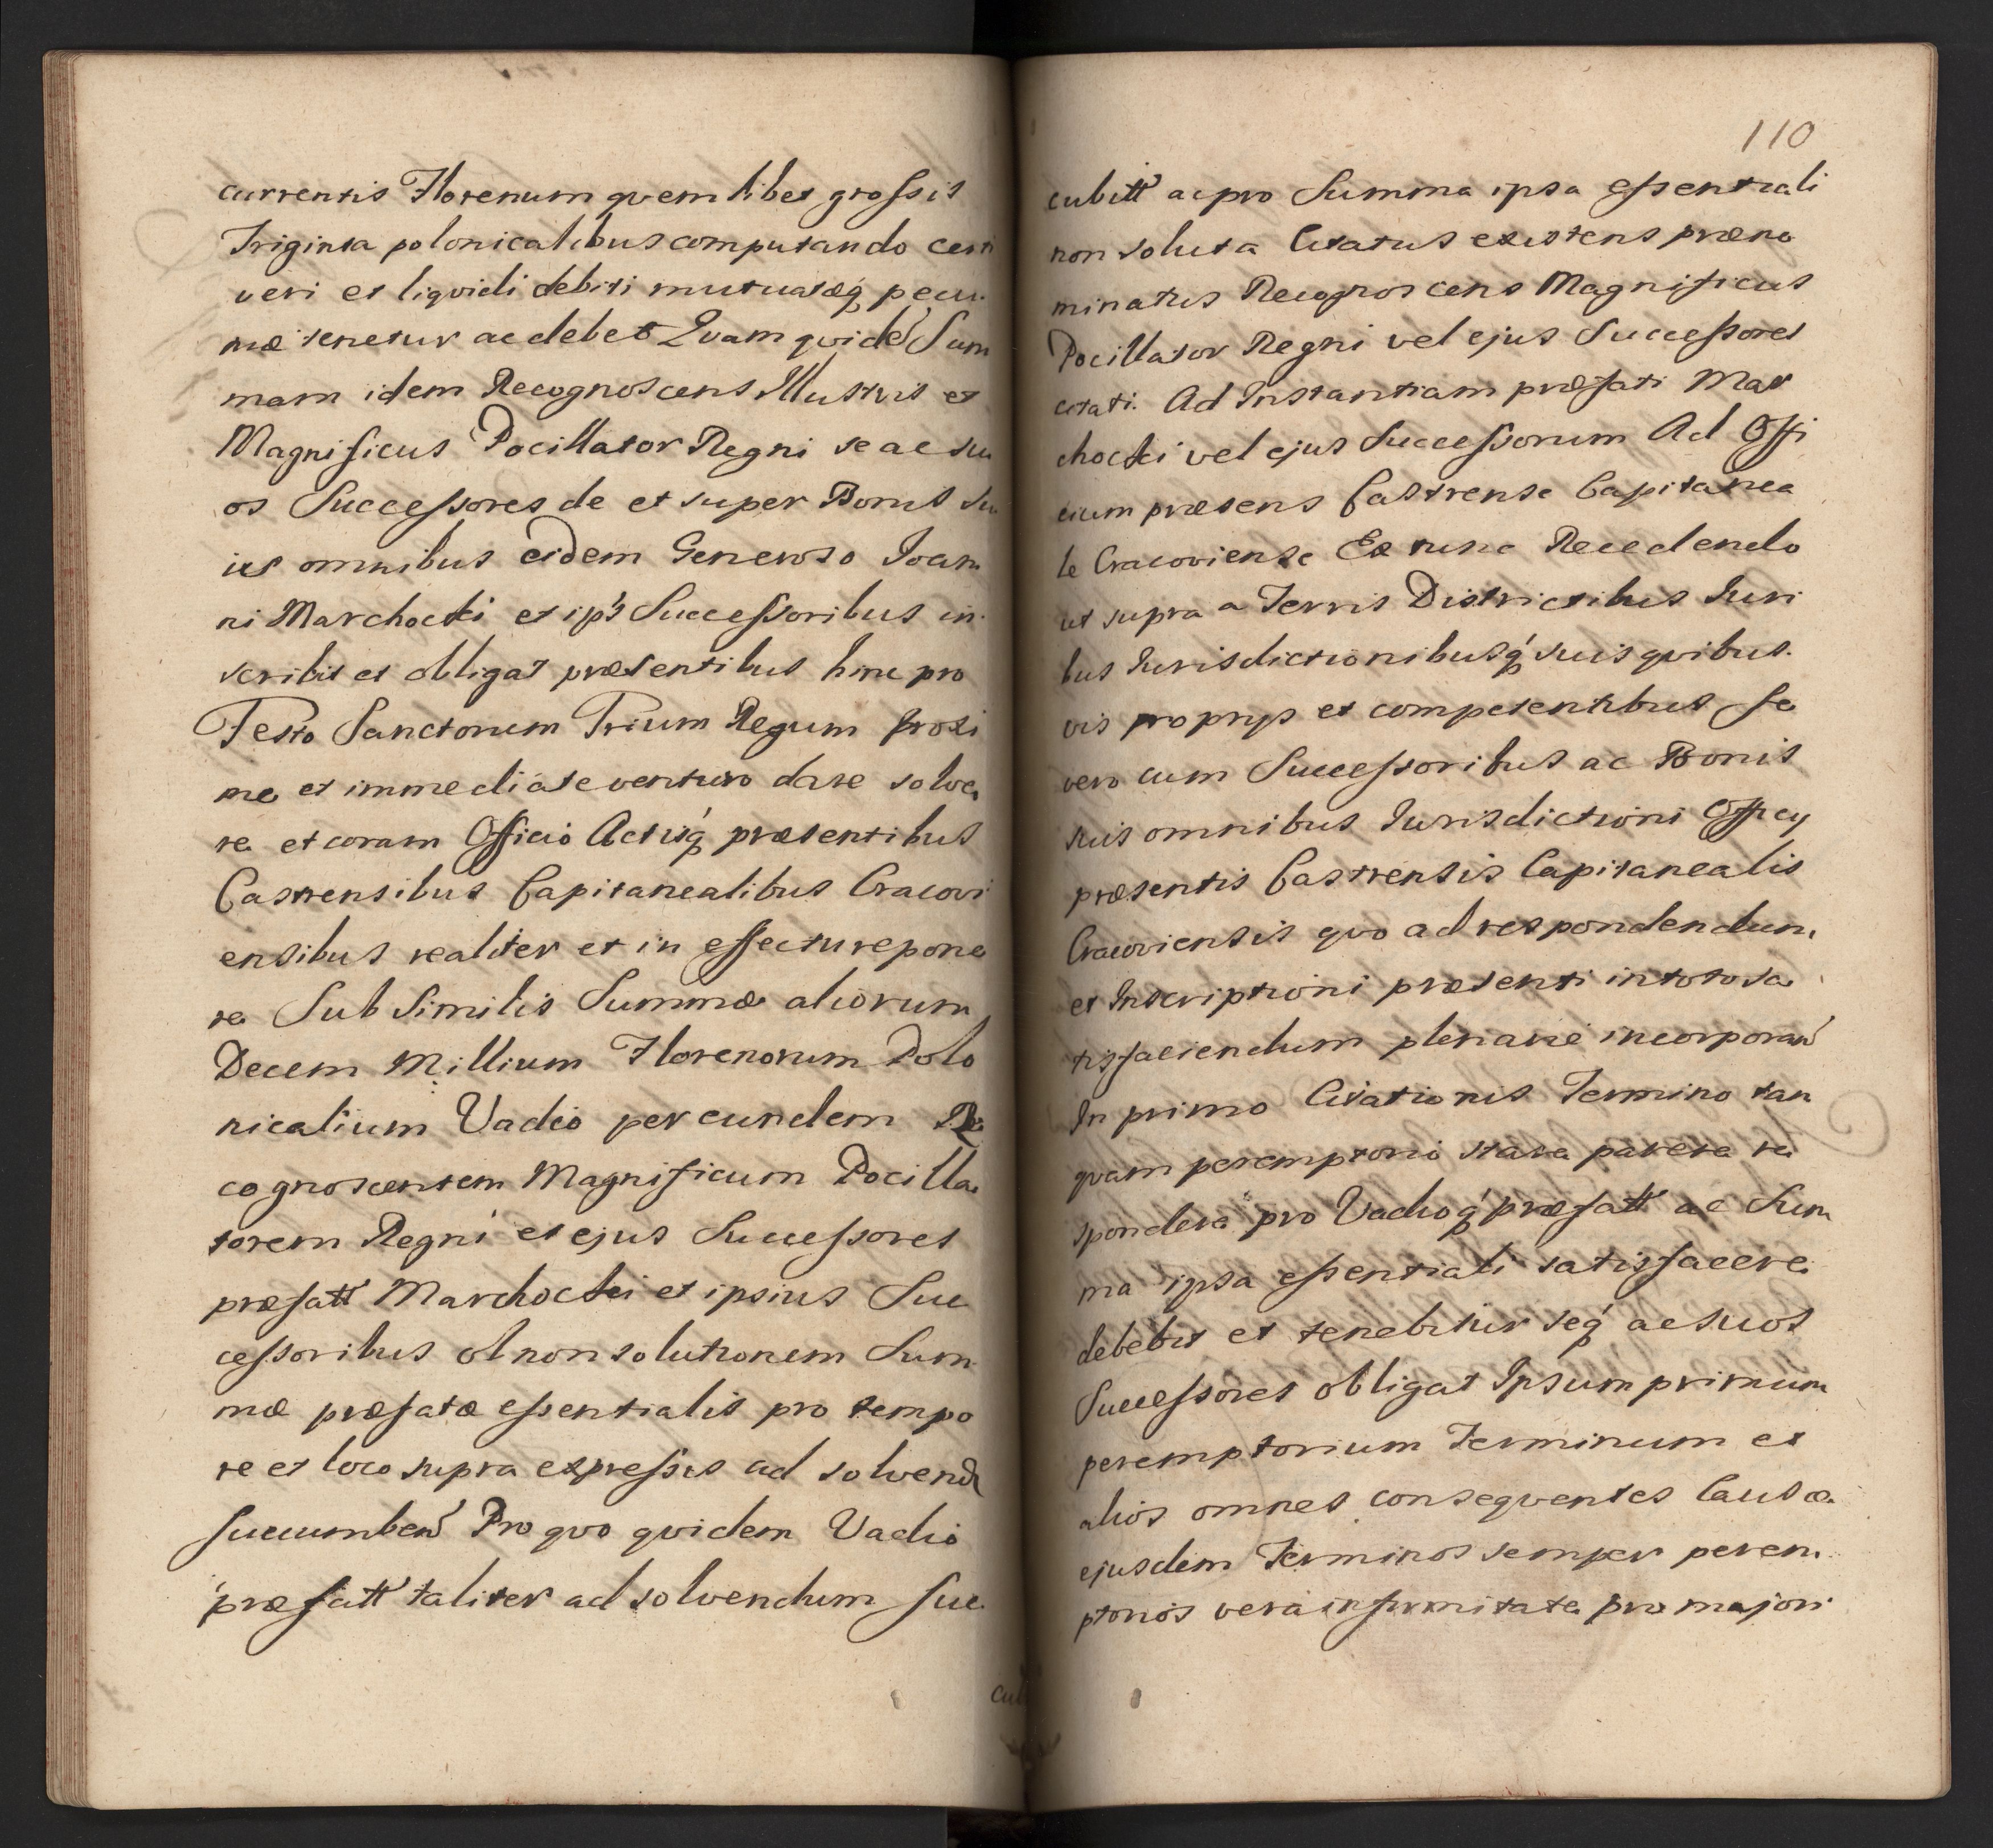 currentis Florenum qvemlibet grossis
Triginta polonicalibus computando certi
veri et liqvidi debiti mutuatæq́ pecu
niæ tenetur ac debet Qvam qvidē Sum
mam idem Recognoscens Illustris et
Magnificus Pocillator Regni se ac su
os Successores de et super Bonis su
is omnibus eidem Generoso Joan
ni Marchocki et ips Successoribus in
scribit et obligat præsentibus hinc pro
Festo Sanctorum Trium Regum proxi
me et immediate venturo dare solve
re et coram Officio Actisq́ præsentibus
Castrensibus Capitanealibus Cracovi
ensibus realiter et in effectu repone
re Sub Similis Summæ aliorum
Decem Millium Florenorum Polo
nicalium Vadio per eundem Re
cognoscentem Magnificum Pocilla
torem Regni et ejus Successores
præfatt Marchocki et ipsius Suc
cessoribus ob non solutionem Sum
mæ præfatæ essentialis pro tempo
re et loco supra expressis ad solvend
succumben Pro qvo qvidem Vadio
præfatt taliter ad solvendum suc
cub
110
cubitt ac pro Summa ipsa essentiali
non soluta Citatus existens præno
minatus Recognoscens Magnificus
Pocillator Regni vel ejus Successores
citati. Ad Instantiam præfati Mar
chocki vel ejus Successorum Ad Offi
cium præsens Castrense Capitanea
le Cracoviense Ex tunc Recedendo
ut supra a Terris Districtibus Juri
bus Jurisdictionibusq́ suis qvibus
vis proprys et competentibus se
vero cum Successoribus ac Bonis
suis omnibus Jurisdictioni Officy
præsentis Castrensis Capitanealis
Cracoviensis qvo ad respondendum
et Inscriptioni præsenti in toto sa
tisfaciendum plenarie incorporan
In primo Citationis Termino tan
qvam peremptorio stare parere re
spondere pro Vadioq́ præfatt ac Sum
ma ipsa essentiali satisfacere
debebit et tenebitur seq́ ac suos
Successores obligat Ipsum primum
peremptorium Terminum et
alios omnes conseqventes Causæ
ejusdem Terminos semper perem
ptorios vera infirmitate pro majori